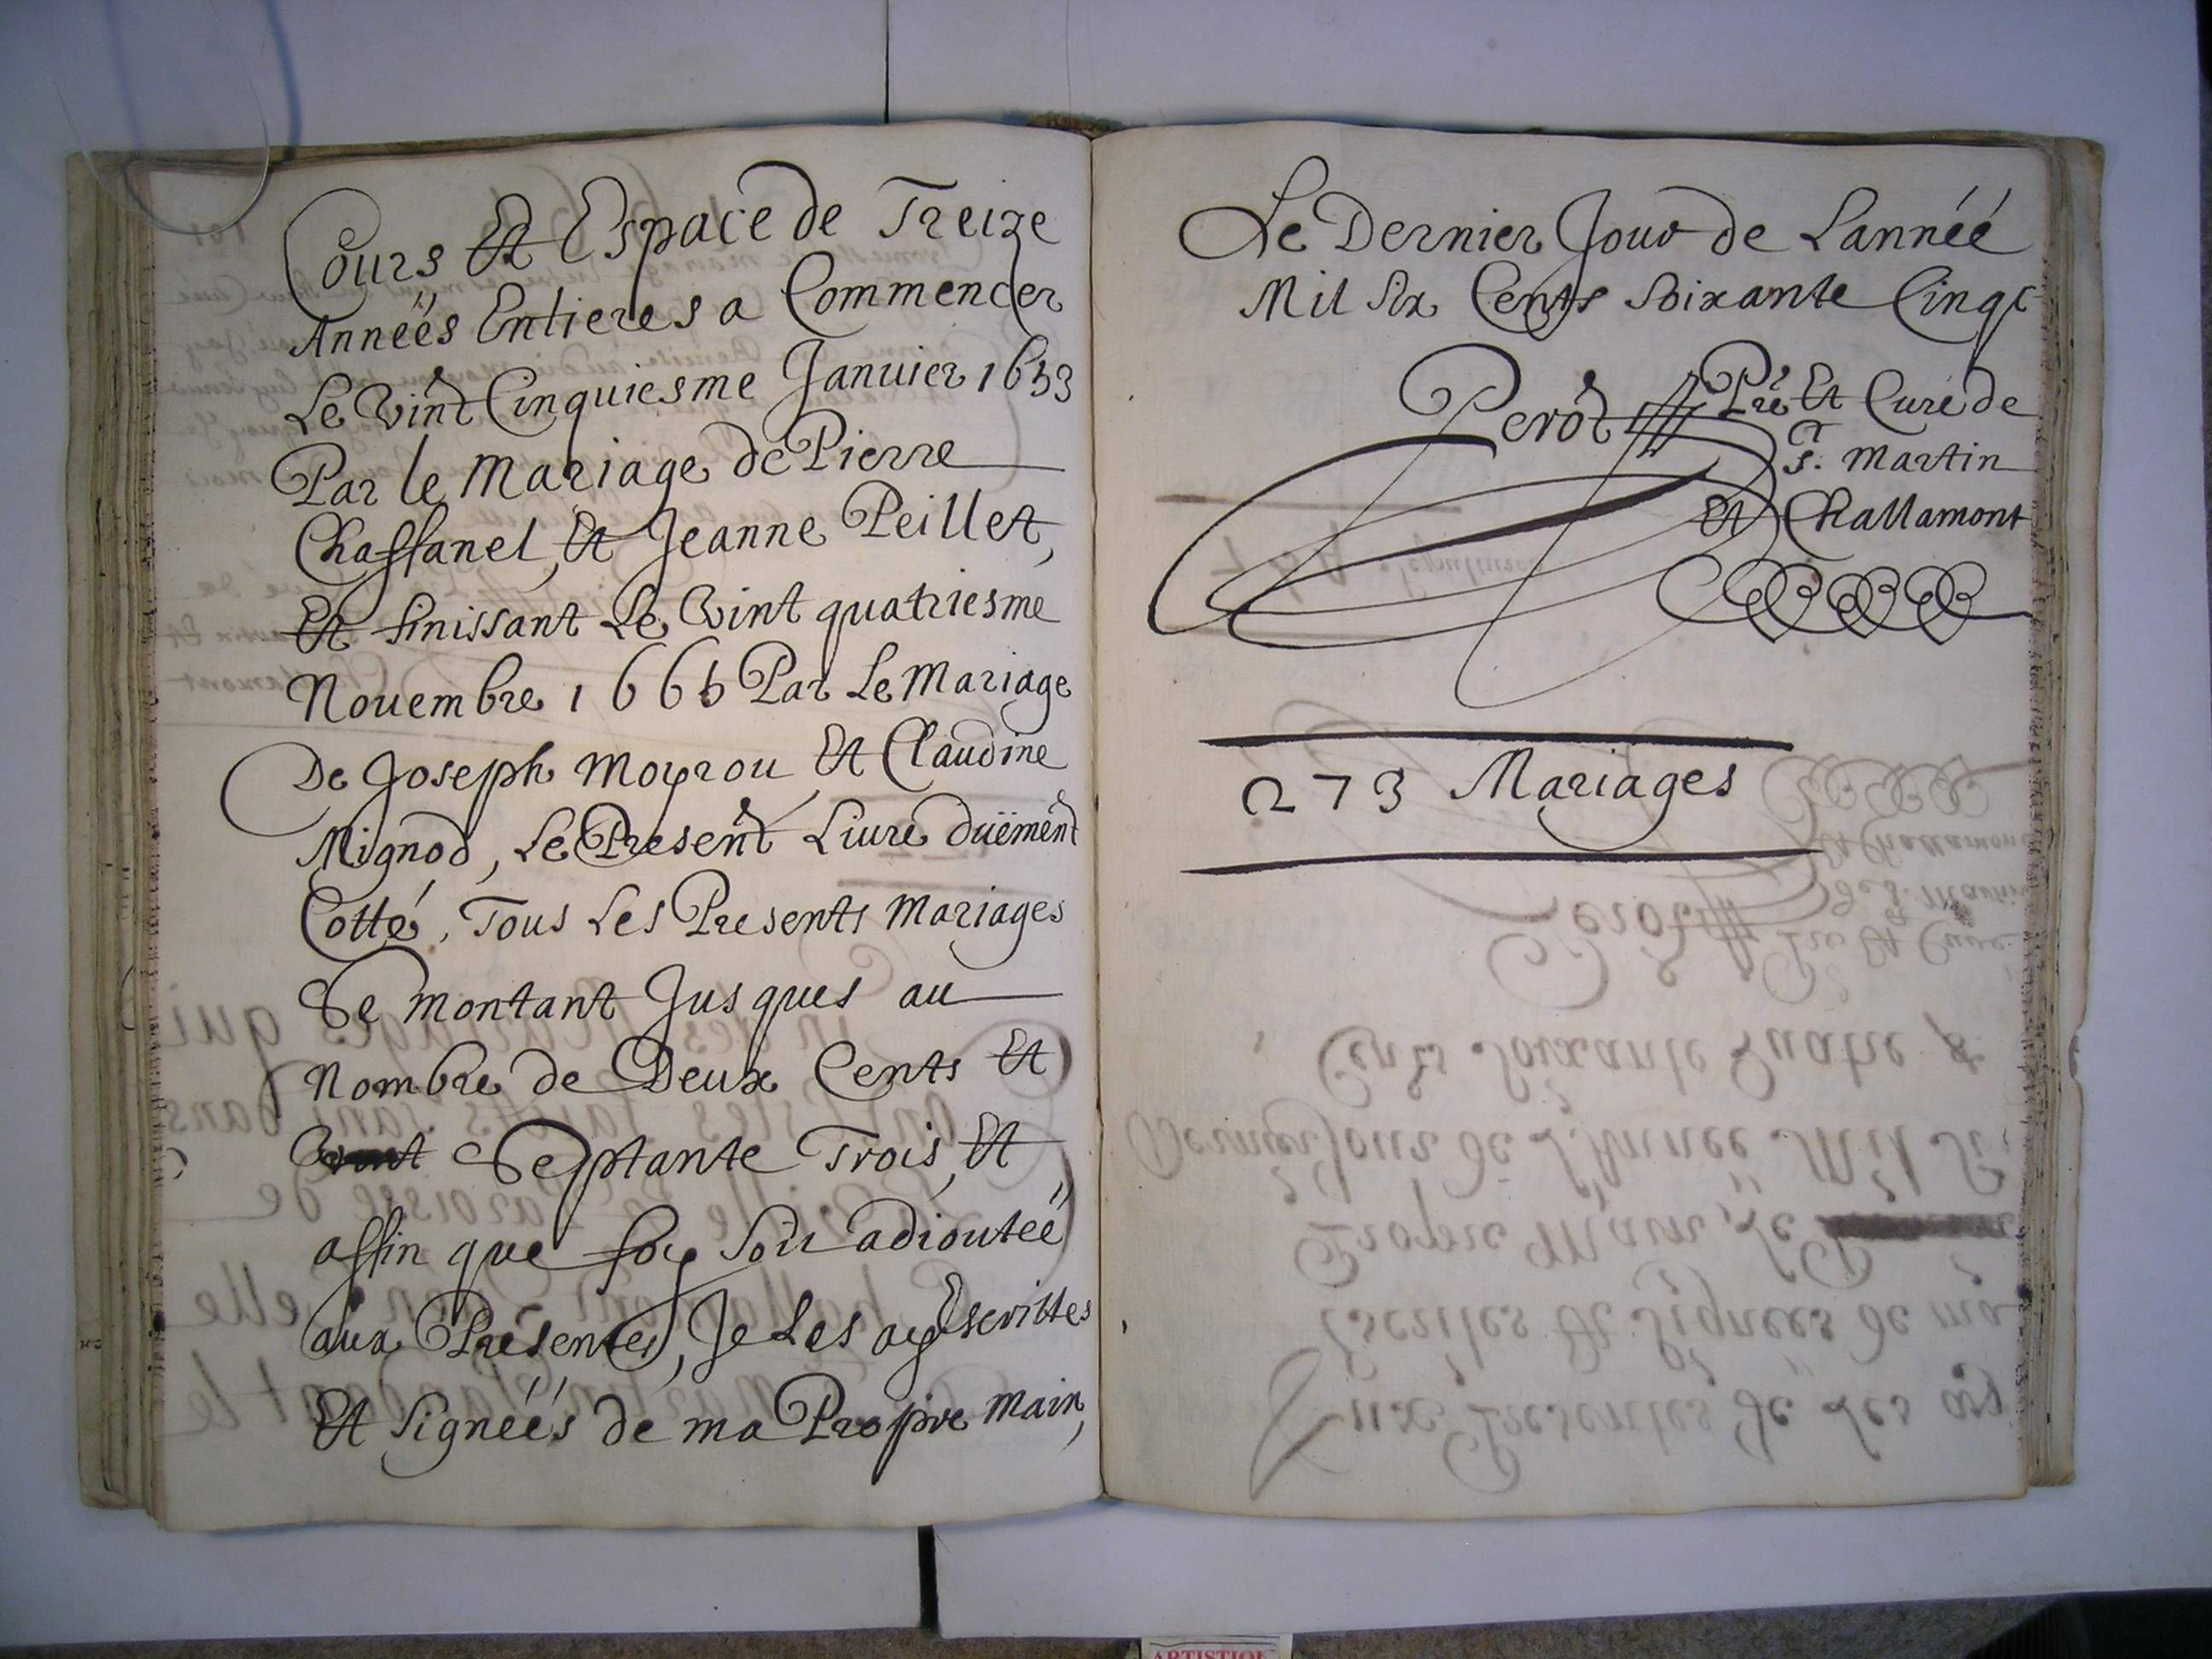 Cours Et Espace de Treize
Anneës Entieres a Commencer
Le Vint Cinquiesme Januier 1653
Par le Mariage de Pierre
Chaffanel, Et Jeanne Peillet,
Et finissant Le Vint quatriesme
Nouembre 1665 Par Le Mariage
De Joseph Moyrou, Et Claudine
Mignod, Le Present Liure duëment
Cotté, Tous Les Presents Mariages
Se montant Jusques au
Nombre de Deux Cents Et
Septante Trois, Et
affin que foy soit adioutéé
aux Presentes, Je Les ay Escrittes
Et signéés de ma Propre main,
Le Dernier Jour de Lannéé
Mil Six Cents Soixante Cinq
Perôt Pre Et Curé de
St. Martin
Et Challamont
273 Mariages
ARTISTIQUE